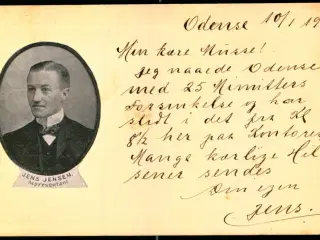 Odense 10/1 19
Min kære Musse!
Jeg naaede Odense
med 25 Minutters
Forsinkelse og har
slidt i det fra Kl
8½ her paa Kontoret
Mange kærlige Hil
sener sendes
Din egen
Jens.
JENS JENSEN.
Repræsentant